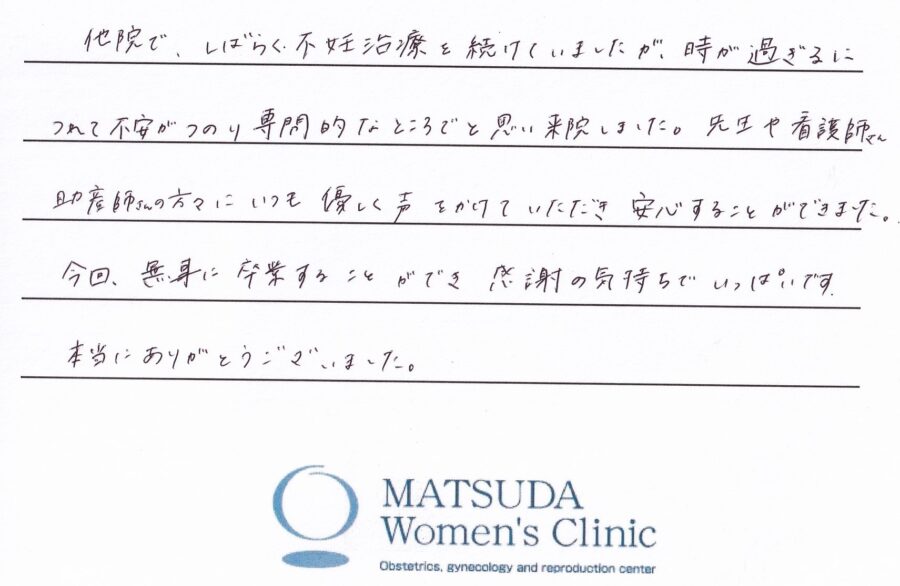 他院で、しばらく不妊治療を続けていましたが、時が過ぎるに
つれて不安がつのり専門的なところでと思い来院しました。先生や看護師さん
助産師さんの方々にいつも優しく声をかけていただき安心することができました。
今回、無事に卒業することができ感謝の気持ちでいっぱいです。
本当にありがとうございました。
MATSUDA
Women's Clinic
Obstetrics, gynecology and reproduction center